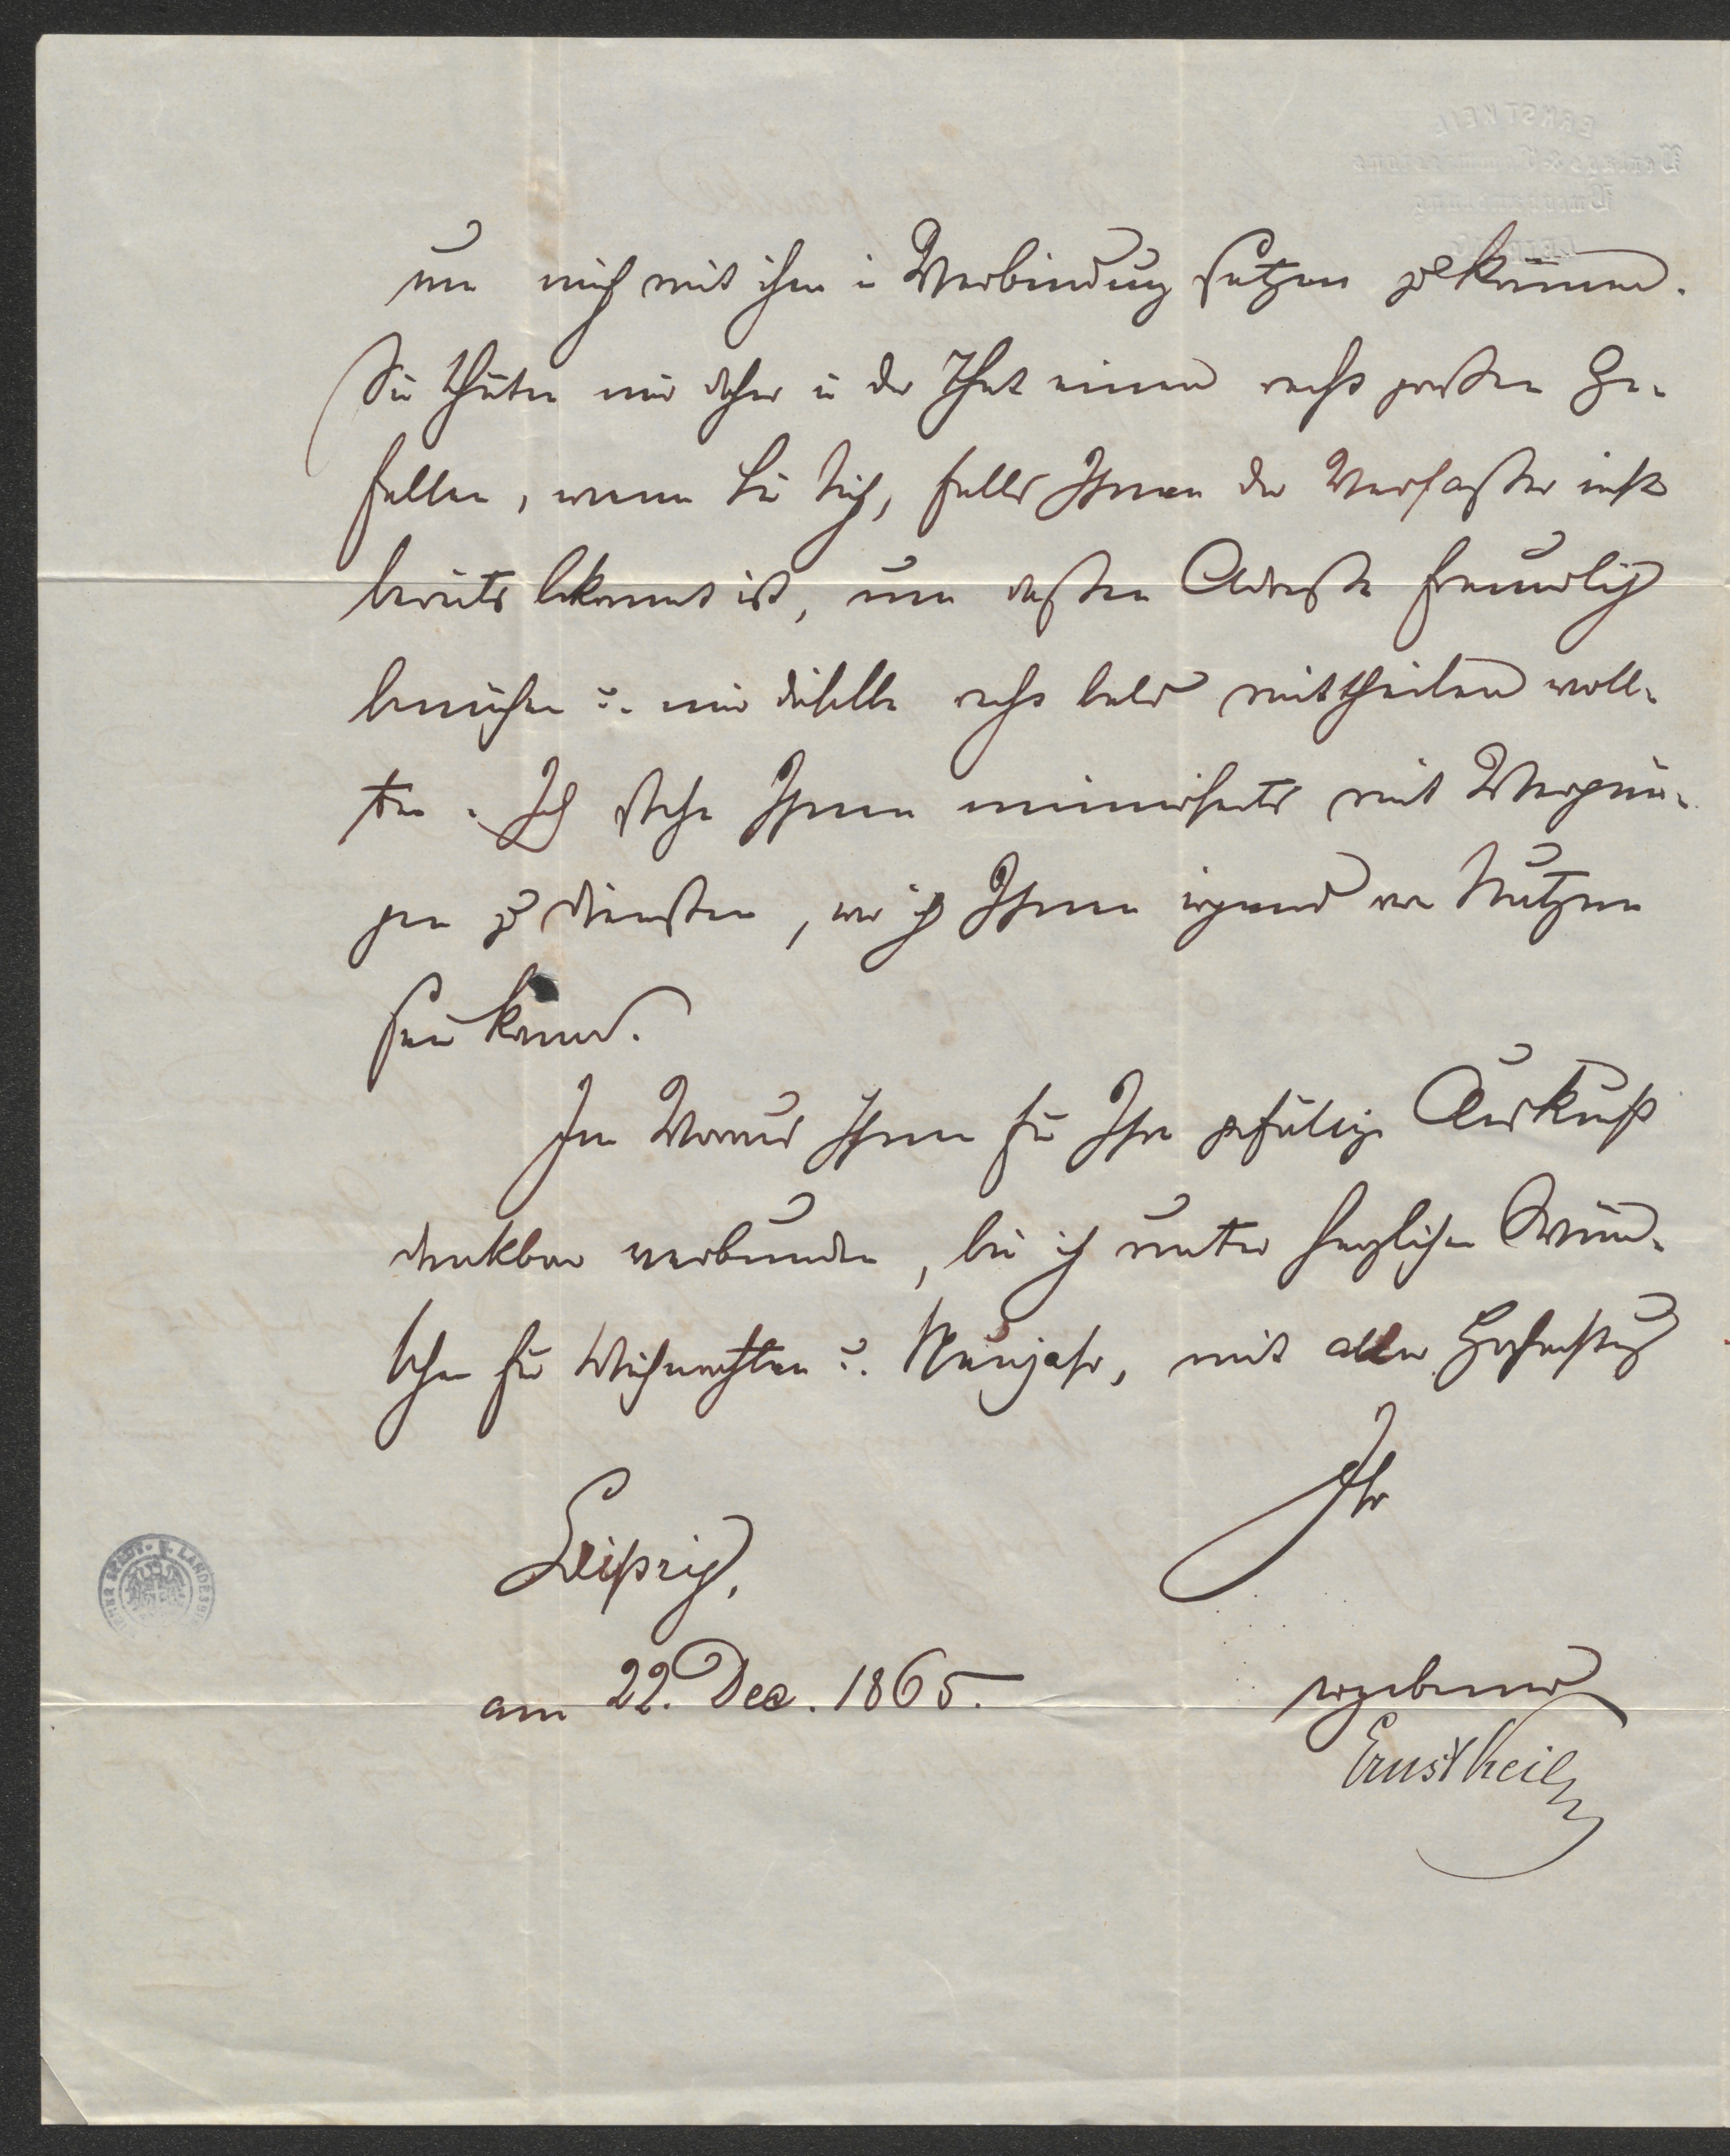 um mich mit ihm in Verbindung setzen zu können.
Sie thäten mir daher in der That einen recht großen Ge-
fallen, wenn Sie sich, falls Ihnen der Verfasser nicht
bereits bekannt ist, um dessen Adresse freundlich
bemühen u. mir dieselbe recht bald mittheilen woll-
ten. Ich stehe Ihnen meinerseits mit Vergnü-
gen zu Diensten, wo ich Ihnen irgend von Nutzen
sein kann.
Im Voraus Ihnen für Ihre gefällige Auskunft
dankbar verbunden, bin ich unter herzlichen Wün-
schen für Weihnachten u. Neujahr, mit aller Hochachtung
Ihr
Leipzig,
am 22. Dec. 1865.
ergebener
Ernst Keil
ERNST KEIL